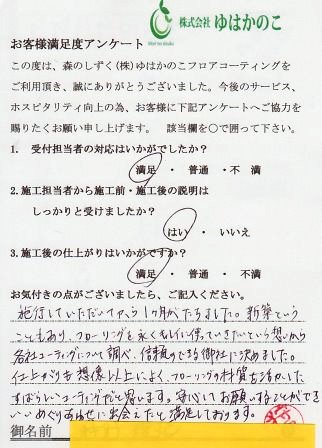 株式会社 ゆはかのこ
お客様満足度アンケート
この度は、森のしずく(株)ゆはかのこフロアコーティングを
ご利用頂き、誠にありがとうございました。今後のサービス、
ホスピタリティ向上の為、お客様に下記アンケートへご協力を
賜りたくお願い申し上げます。 該当欄を○で囲って下さい。
1. 受付担当者の対応はいかがでしたか?
満足 ・ 普通 ・不 満
2.施工担当者から施工前・施工後の説明は
しっかりと受けましたか?
はい ・ いいえ
3.施工後の仕上がりはいかがですか?
満足 ・ 普通 ・ 不満
お気付きの点がございましたら、ご記入ください。
施行していただいてから1ヶ月がたちました。新築という
こともあり、フローリングを永くキレイに使っていきたいという想いから
各社コーティングについて調べ、信頼のできる御社に決めました。
仕上がりも想像以上によく、フローリングの材質も活かした
すばらしいコーティングだと思います。安心してお願いすることができ
いいめぐりあわせに出会えたと満足しております。
御名前